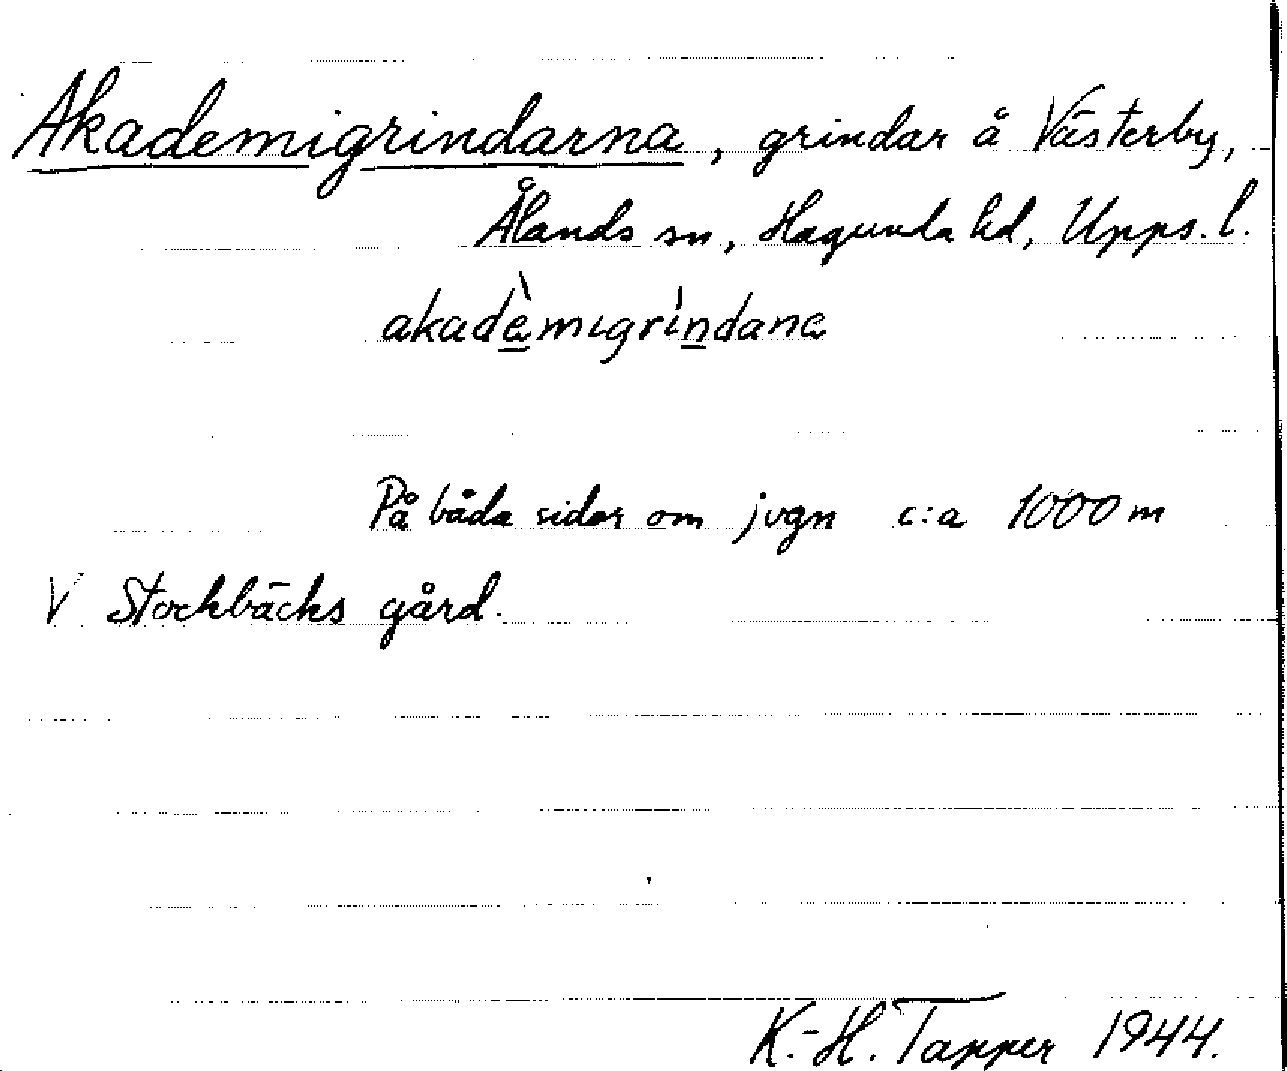 Akademigrindarna, grindar å Västerby,
Ålands sn, Hagunda hd, Upps. l.
akadèmigríndana
På båda sidor om jvgn c:a 1000 m
V Stockbäcks gård.
K.-H. Tapper 1944.